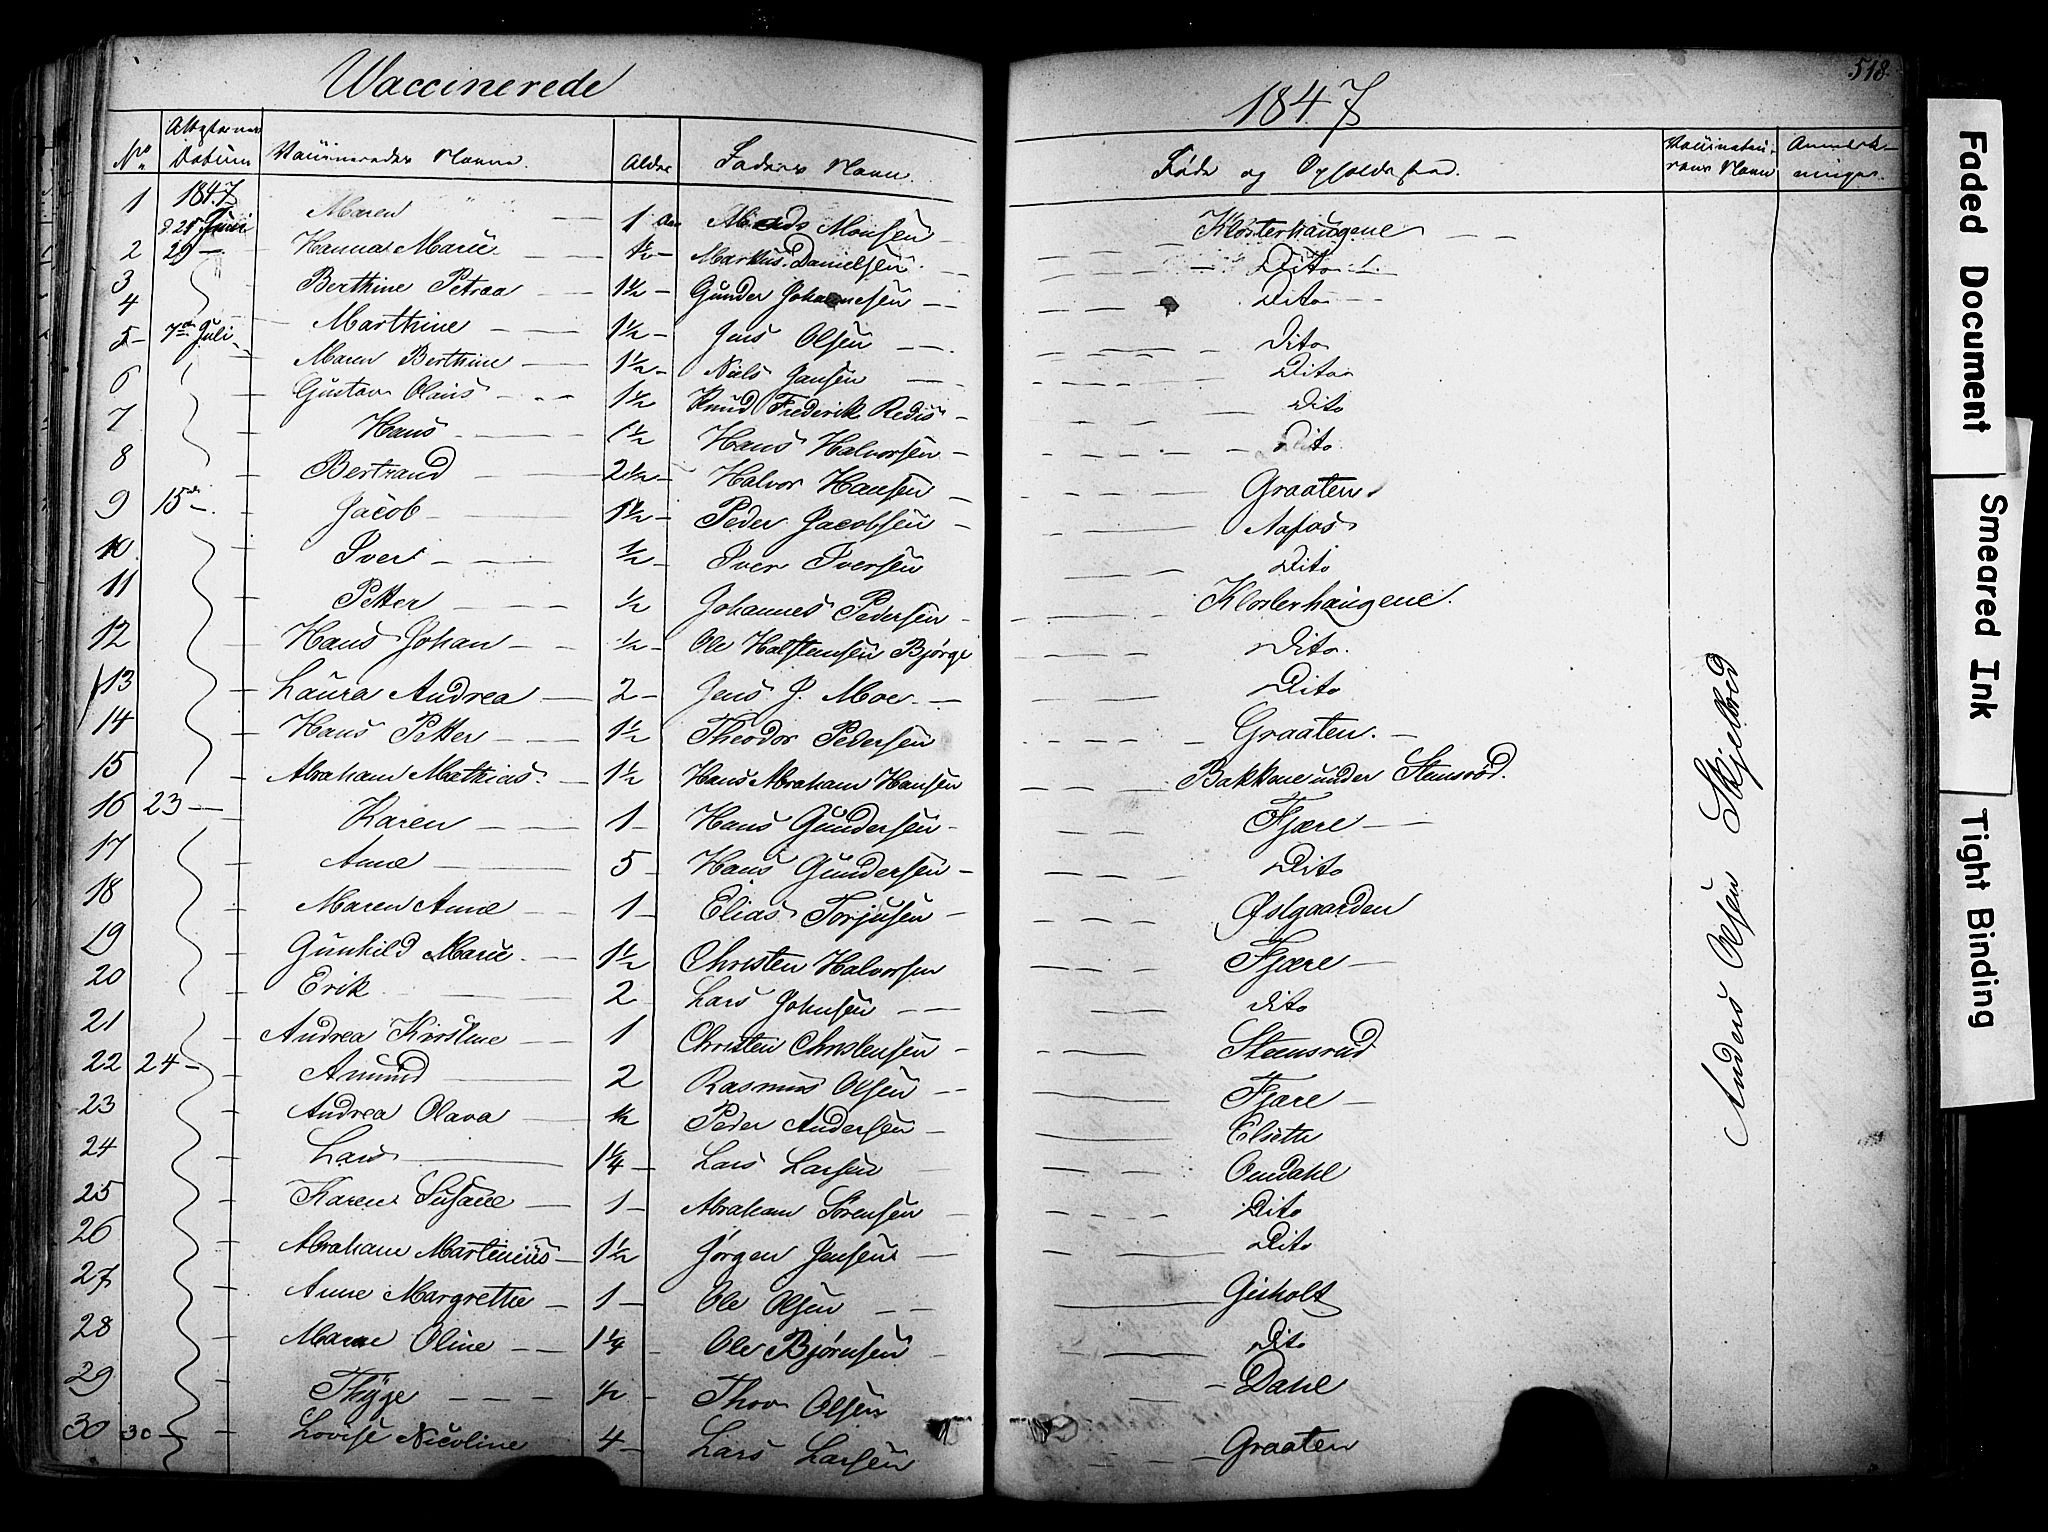 Waccinerede
1847
518
No Attesternes Datum Vaccineredes Navne. Alder Faders Navn. Føde og Opholdssted. Vaccinateurens Navn Anmærkninger.
1 1847 d. 25 Juni Maren 1 Aar Monsen Klosterhaugene
2 29 Hanna Marie Markus Danielsen Dito
3 Berthine Petrea 1 1/2 Gunder Johannesen Dito
4 Marthine 1 1/2 Jens Olsen Dito
5 7de Juli Maren Berthine 1 1/2 Niels Jansen Dito
6 Gustav Olaus 1 1/2 Knud Frederik Redis Dito
7 Hans 1 1/2 Hans Halvorsen Dito
8 Bertrand 2 1/2 Halvor Hansen Graaten
9 15de Jacob 1 1/2 Peder Jacobsen
10 Iver 1/2 Iver Iversen Dito
11 Petter 1/2 Johannes Pedersen Klosterhaugene.
12 Hans Johan 1/2 Ole Halstensen Bjørge Dito.
13 Laura Andrea 2 Jens J. Moe Dito
14 Hans Petter 1 1/2 Theodor Pedersen Graaten.
15 Abraham Mathias 1 1/2 Hans Abraham Hansen Bakkene under Stensrød.
16 23 Karen 1 Hans Gundersen Fjære
17 Anne 5 Hans Gundersen Dito
18 Maren Anne 1 Elias Torjusen Østgaarden
19 Gunhild Marie 1 1/2 Christen Halvorsen Fjære
20 Erik 2 Lars Johnsen dito
21 Andrea Kirstine 1 Christen Christensen Steensrud
22 24 Amund 2 Rasmus Olsen Fjære
23 Andrea Olava 1/2 Peder Andersen Elseth
24 Lars 1 1/4 Lars Larsen Omdahl
25 Karen Susane 1 Abraham Sørensen Dito
26 Abraham Martinius 1 1/2 Jørgen Jensen Dito
27 Anne Margrethe 1 Ole Olsen Gisholt
28 Maren Oline 1 1/4 Ole Bjørnsen Dito
29 Thyge 1/2 Thor Olsen Dahl
30 30 Lovise Nicoline 4 Lars Larsen Graaten
Anders Olsen Skjelbred
Faded Document
Smeared Ink
Tight Binding